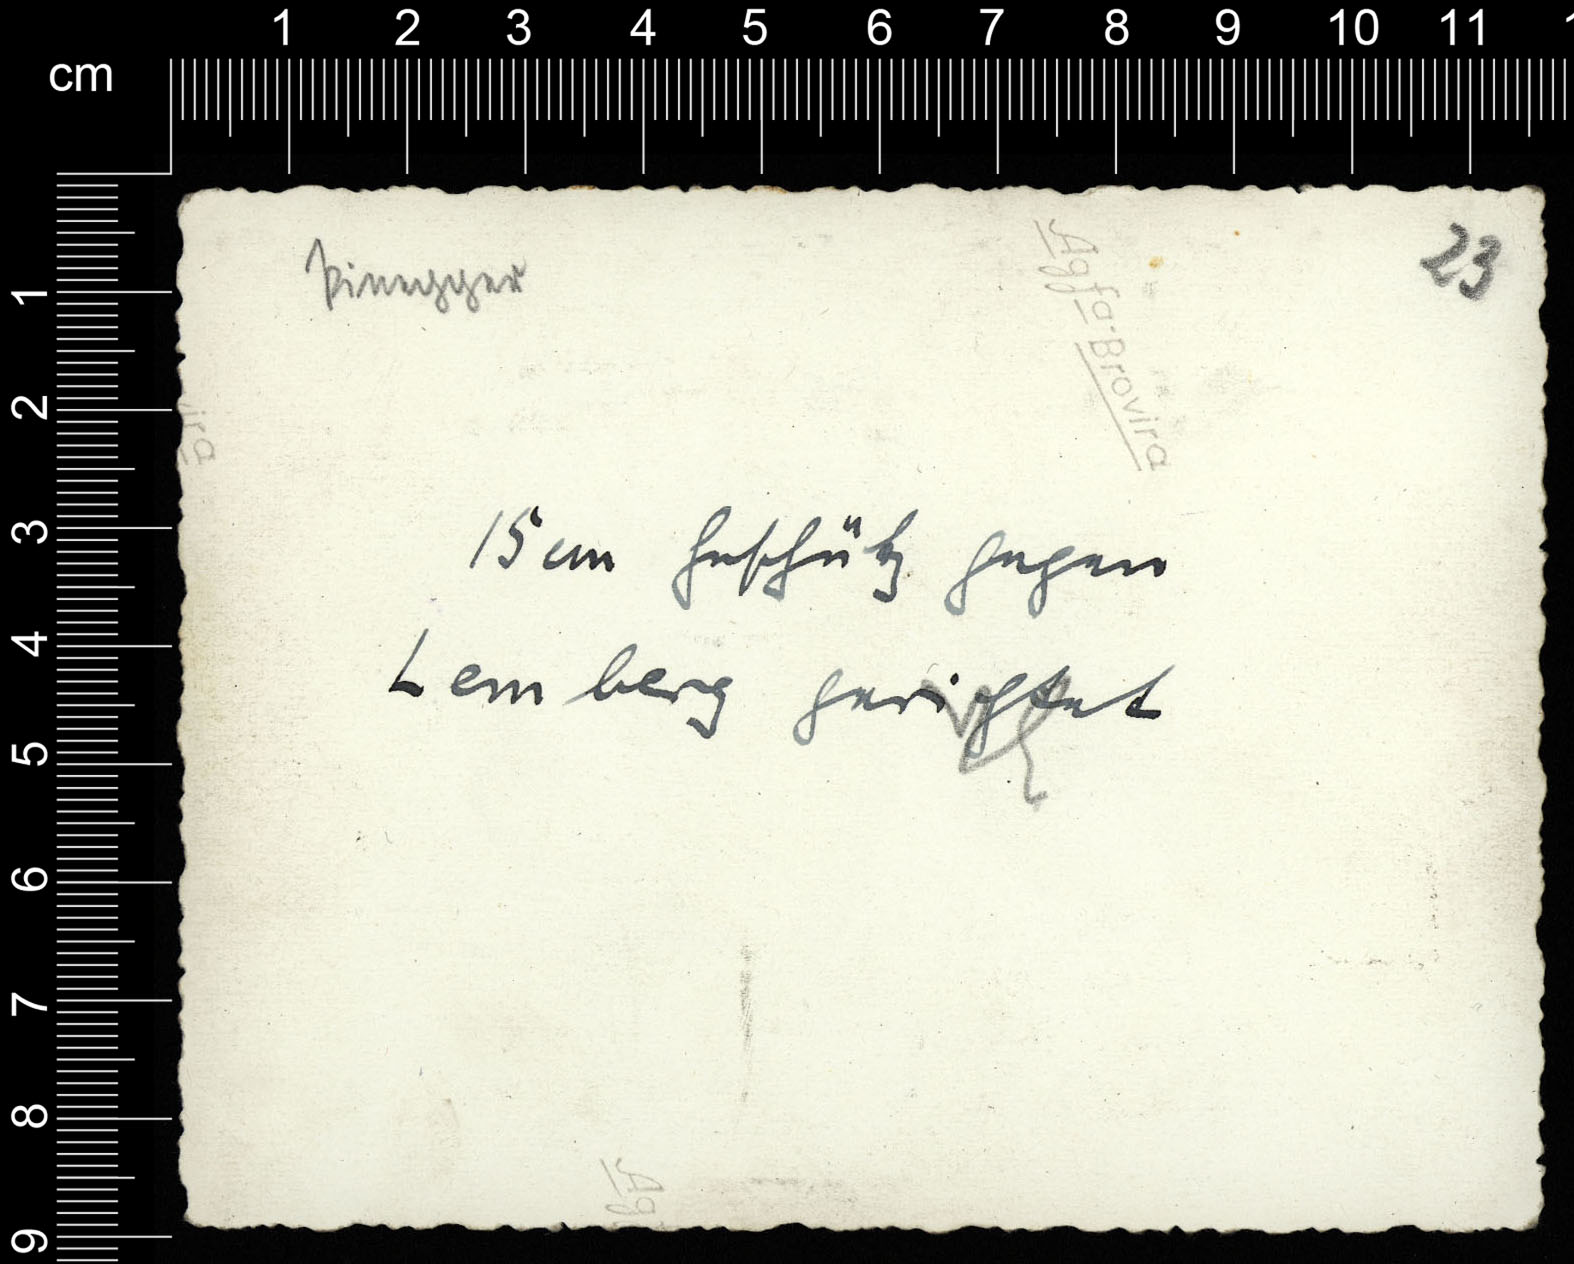 1 2 3 4 5 6 7 8 9 10 11
cm
Pinegger
23
Agfa-Brovira
ira
15 cm Geschütz gegen
Lemberg gerichtet
Ag
1
2
3
4
5
6
7
8
9